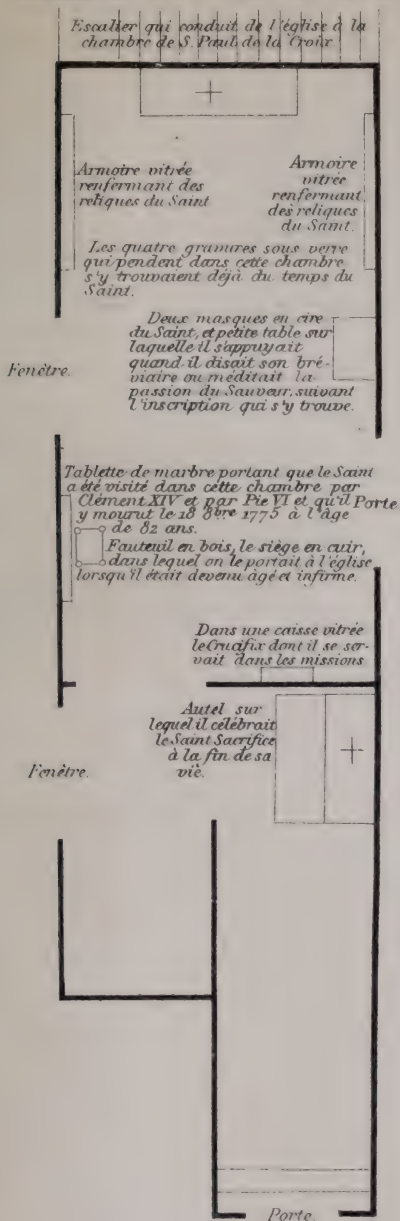 Escalier qui conduit de l'église à la
chambre de S. Paul de la Croix
Armoire vitrée
renfermant des
reliques du Saint
Armoire
vitrée
renfermant
des reliques
du Saint.
Les quatre gravures sous verre
qui pendent dans cette chambre
s'y trouvaient déjà du temps du
Saint.
Deux masques en cire
du Saint, et petite table sur
laquelle il s'appuyait
quand il disait son bré-
viaire ou méditait la
passion du Sauveur, suivant
l'inscription qui s'y trouve.
Fenêtre.
Tablette de marbre portant que le Saint
a été visité dans cette chambre par
Clément XIV et par Pie VI et qu'il
y mourut le 18 8bre 1775 à l'âge
de 82 ans.
Porte
Fauteuil en bois, le siège en cuir,
dans lequel on le portait à l'église
lorsqu'il était devenu âgé et infirme.
Dans une caisse vitrée
le Crucifix dont il se ser-
vait dans les missions
Autel sur
lequel il célébrait
le Saint Sacrifice
à la fin de sa
vie.
Fenêtre.
Porte.